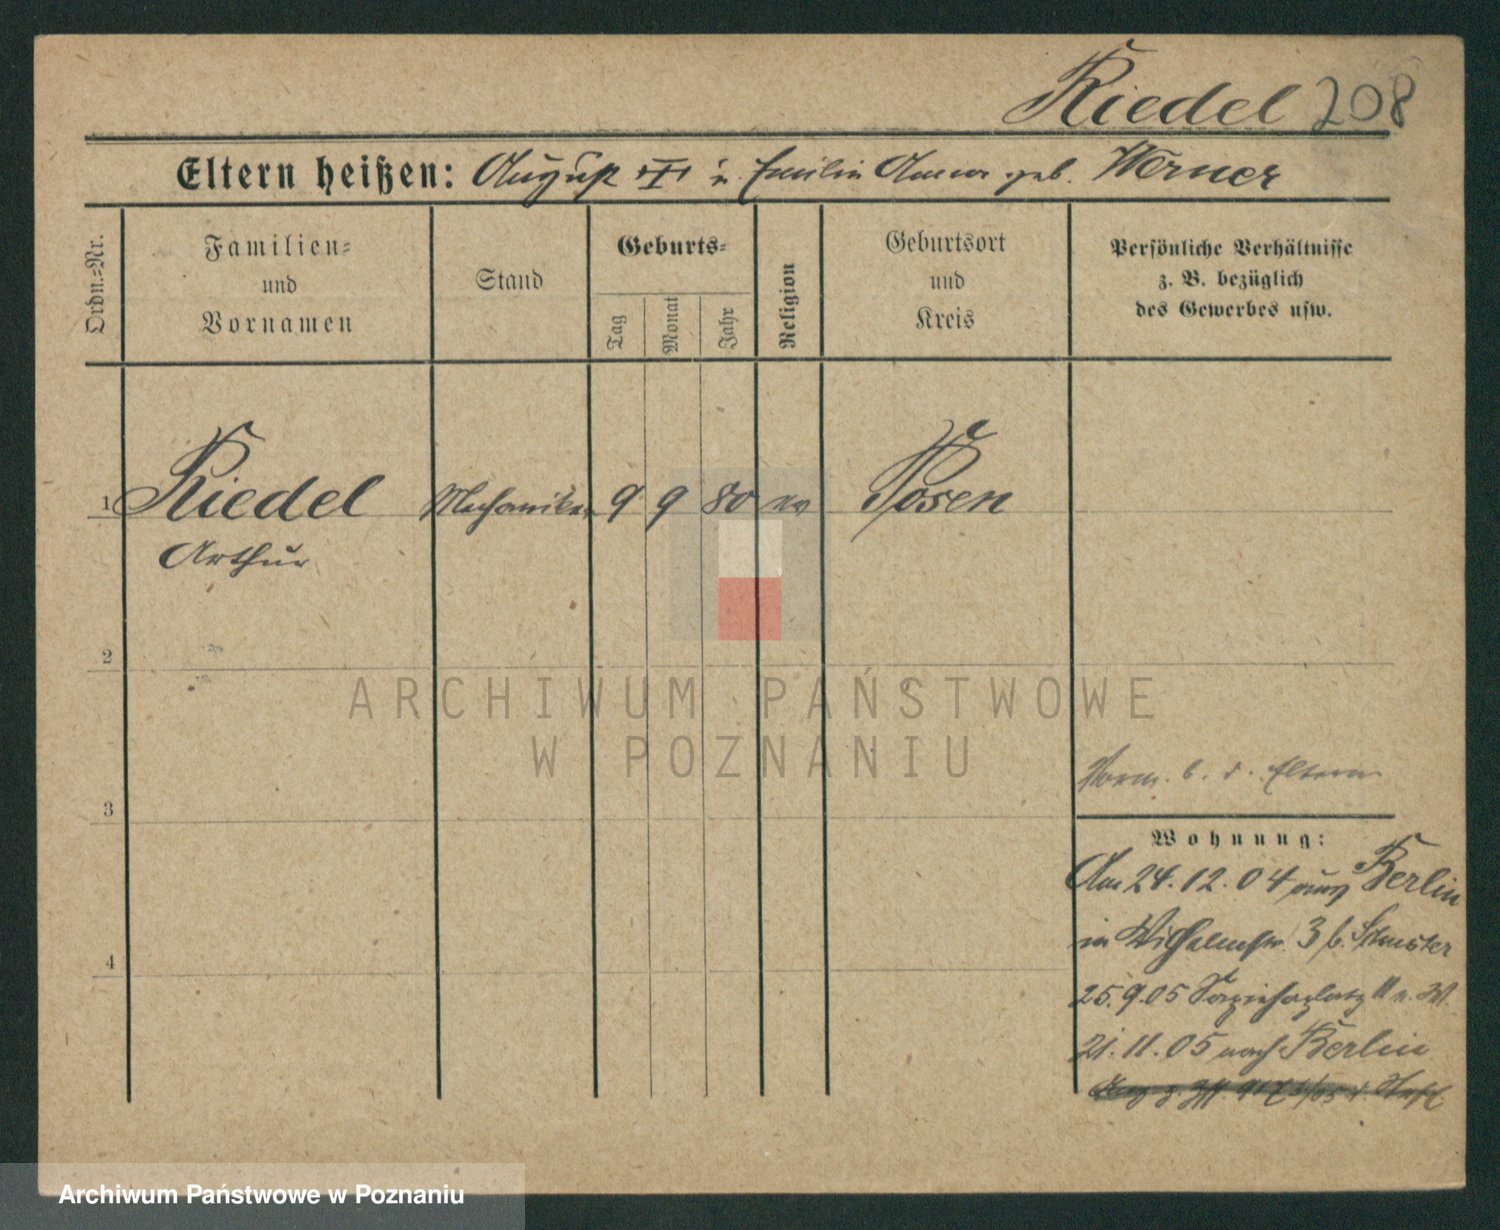 Riedel 208
Eltern heißen: August u. Emilie Anna geb. Werner
Ordn.=Nr.
Familien=
und
Vornamen
Stand
Geburts=
Tag
Monat
Jahr
Religion
Geburtsort
und
Kreis
Persönliche Verhältnisse
z. B. bezüglich
des Gewerbes usw.
1 Riedel Mechaniker 9 9 80 ev Posen
Arthur
2
3
4
Vorm. b. d. Eltern
Wohnung:
Am 24.12.04 aus Berlin
in Wilhelmstr. 3 b. Schuster
25.9.05 Sapiehaplatz
21.11.05 nach Berlin
ARCHIWUM PAŃSTWOWE
W POZNANIU
Archiwum Państwowe w Poznaniu